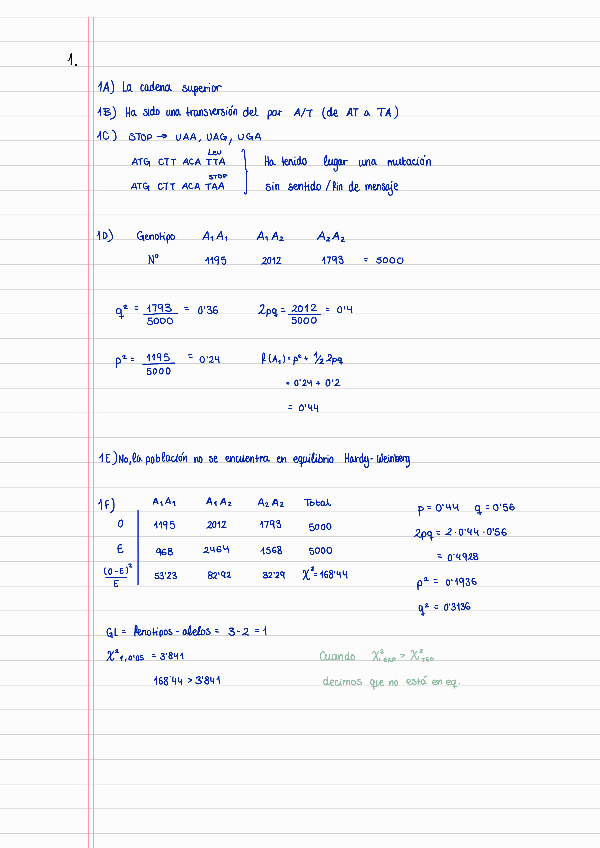 1.
1A) La cadena superior
1B) Ha sido una transversión del par A/T (de AT a TA)
1C) STOP → UAA, UAG, UGA
LEU
ATG CTT ACA TTA
Ha tenido lugar una mutación
STOP
ATG CTT ACA TAA
sin sentido / fin de mensaje
1D) Genotipo A₁A₁ A₁A₂ A₂A₂
Nº 1195 2012 1793 = 5000
q² = 1793/5000 = 0'36 2pq = 2012/5000 = 0'4
p² = 1195/5000 = 0'24 f(A₁) = p² + 1/2 2pq
= 0'24 + 0'2
= 0'44
1E) No, la población no se encuentra en equilibrio Hardy-Weinberg
1F) A₁A₁ A₁A₂ A₂A₂ Total
O 1195 2012 1793 5000
E 968 2464 1568 5000
(O-E)²/E 53'23 82'92 32'29 χ² = 168'44
p = 0'44 q = 0'56
2pq = 2·0'44·0'56
= 0'4928
p² = 0'1936
q² = 0'3136
GL = fenotipos - alelos = 3-2 = 1
χ² 1, 0'05 = 3'841
168'44 > 3'841
Cuando χ²EXP > χ²TEO
decimos que no está en eq.